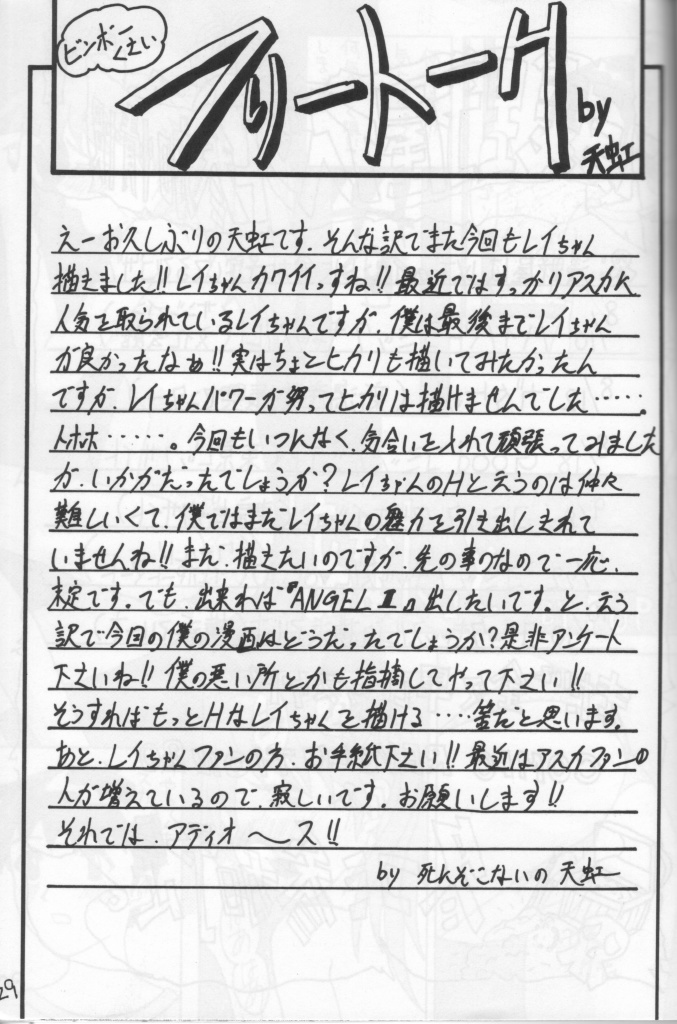 ビンボー
くさい
フリートーク
by
天虹
えーお久しぶりの天虹です。そんな訳でまた今回もレイちゃん
描きました!!レイちゃんカワイイっすね!!最近ではすっかりアスカに
人気を取られているレイちゃんですが、僕は最後までレイちゃん
が良かったなぁ!!実はちょとヒカリも描いてみたかったん
ですが、レイちゃんパワーが勝ってヒカリは描けませんでした……。
トホホ……。今回もいつになく、気合いを入れて頑張ってみました
が、いかがだったでしょうか?レイちゃんのHと云うのは仲々
難しいくて、僕ではまだレイちゃんの魅力を引き出しきれて
いませんね!!まだ、描きたいのですが、先の事なので一応、
未定です。でも、出来れば『ANGEL Ⅱ』出したいです。と、云う
訳で今回の僕の漫画はどうだったでしょうか?是非アンケート
下さいね!!僕の悪い所とかも指摘してやって下さい!!
そうすればもっとHなレイちゃんを描ける……筈だと思います。
あと、レイちゃんファンの方、お手紙下さい!!最近はアスカファンの
人が増えているので、寂しいです。お願いします!!
それでは、アディオ〜ス!!
by 死んぞこないの 天虹
29